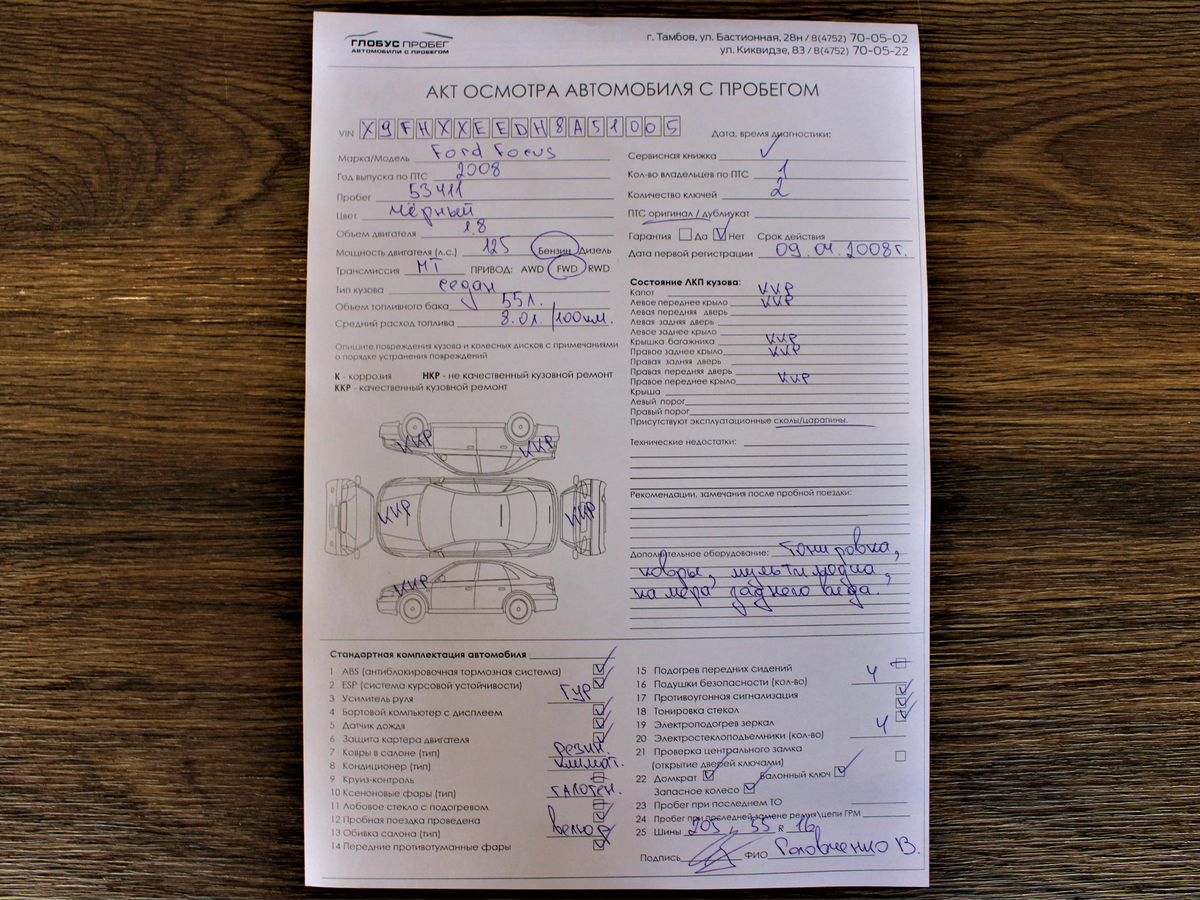 ГЛОБУС ПРОБЕГ
АВТОМОБИЛИ С ПРОБЕГОМ
г. Тамбов, ул. Бастионная, 28н / 8(4752) 70-05-02
ул. Киквидзе, 83 / 8(4752) 70-05-22
АКТ ОСМОТРА АВТОМОБИЛЯ С ПРОБЕГОМ
VIN X9FHXXEEDH8A51005
Марка/Модель Ford Focus
Год выпуска по ПТС 2008
Пробег 53411
Цвет чёрный
Объем двигателя 1,8
Мощность двигателя (л.с.) 125 Бензин Дизель
Трансмиссия МТ ПРИВОД: AWD FWD RWD
Тип кузова седан
Объем топливного бака 55л.
Средний расход топлива 8.0л. /100км.
Опишите повреждения кузова и колесных дисков с примечаниями
о порядке устранения повреждений
К - коррозия НКР - не качественный кузовной ремонт
ККР - качественный кузовной ремонт
ККР ККР
ККР ККР
ККР
Дата, время диагностики:
Сервисная книжка ✓
Кол-во владельцев по ПТС 1
Количество ключей 2
ПТС оригинал / дубликат
Гарантия Да Нет Срок действия
Дата первой регистрации 09.04.2008г.
Состояние ЛКП кузова:
Капот ККР
Левое переднее крыло ККР
Левая передняя дверь
Левая задняя дверь
Левое заднее крыло
Крышка багажника ККР
Правое заднее крыло ККР
Правая задняя дверь
Правая передняя дверь
Правое переднее крыло ККР
Крыша
Левый порог
Правый порог
Присутствуют эксплуатационные сколы/царапины.
Технические недостатки:
Рекомендации, замечания после пробной поездки:
Дополнительное оборудование: тонировка,
ковры, мультимедиа,
камера заднего вида.
Стандартная комплектация автомобиля
1 ABS (антиблокировочная тормозная система)
2 ESP (система курсовой устойчивости)
3 Усилитель руля ГУР
4 Бортовой компьютер с дисплеем
5 Датчик дождя
6 Защита картера двигателя
7 Ковры в салоне (тип) резин.
8 Кондиционер (тип) климат.
9 Круиз-контроль
10 Ксеноновые фары (тип) галоген.
11 Лобовое стекло с подогревом
12 Пробная поездка проведена
13 Обивка салона (тип) велюр
14 Передние противотуманные фары
15 Подогрев передних сидений
16 Подушки безопасности (кол-во) 4
17 Противоугонная сигнализация
18 Тонировка стекол
19 Электроподогрев зеркал
20 Электростеклоподъемники (кол-во) 4
21 Проверка центрального замка
(открытие дверей ключами)
22 Домкрат Балонный ключ
Запасное колесо
23 Пробег при последнем ТО
24 Пробег при последней замене ремня\цепи ГРМ
25 Шины 205, 55 R 16
Подпись ФИО Головченко В.